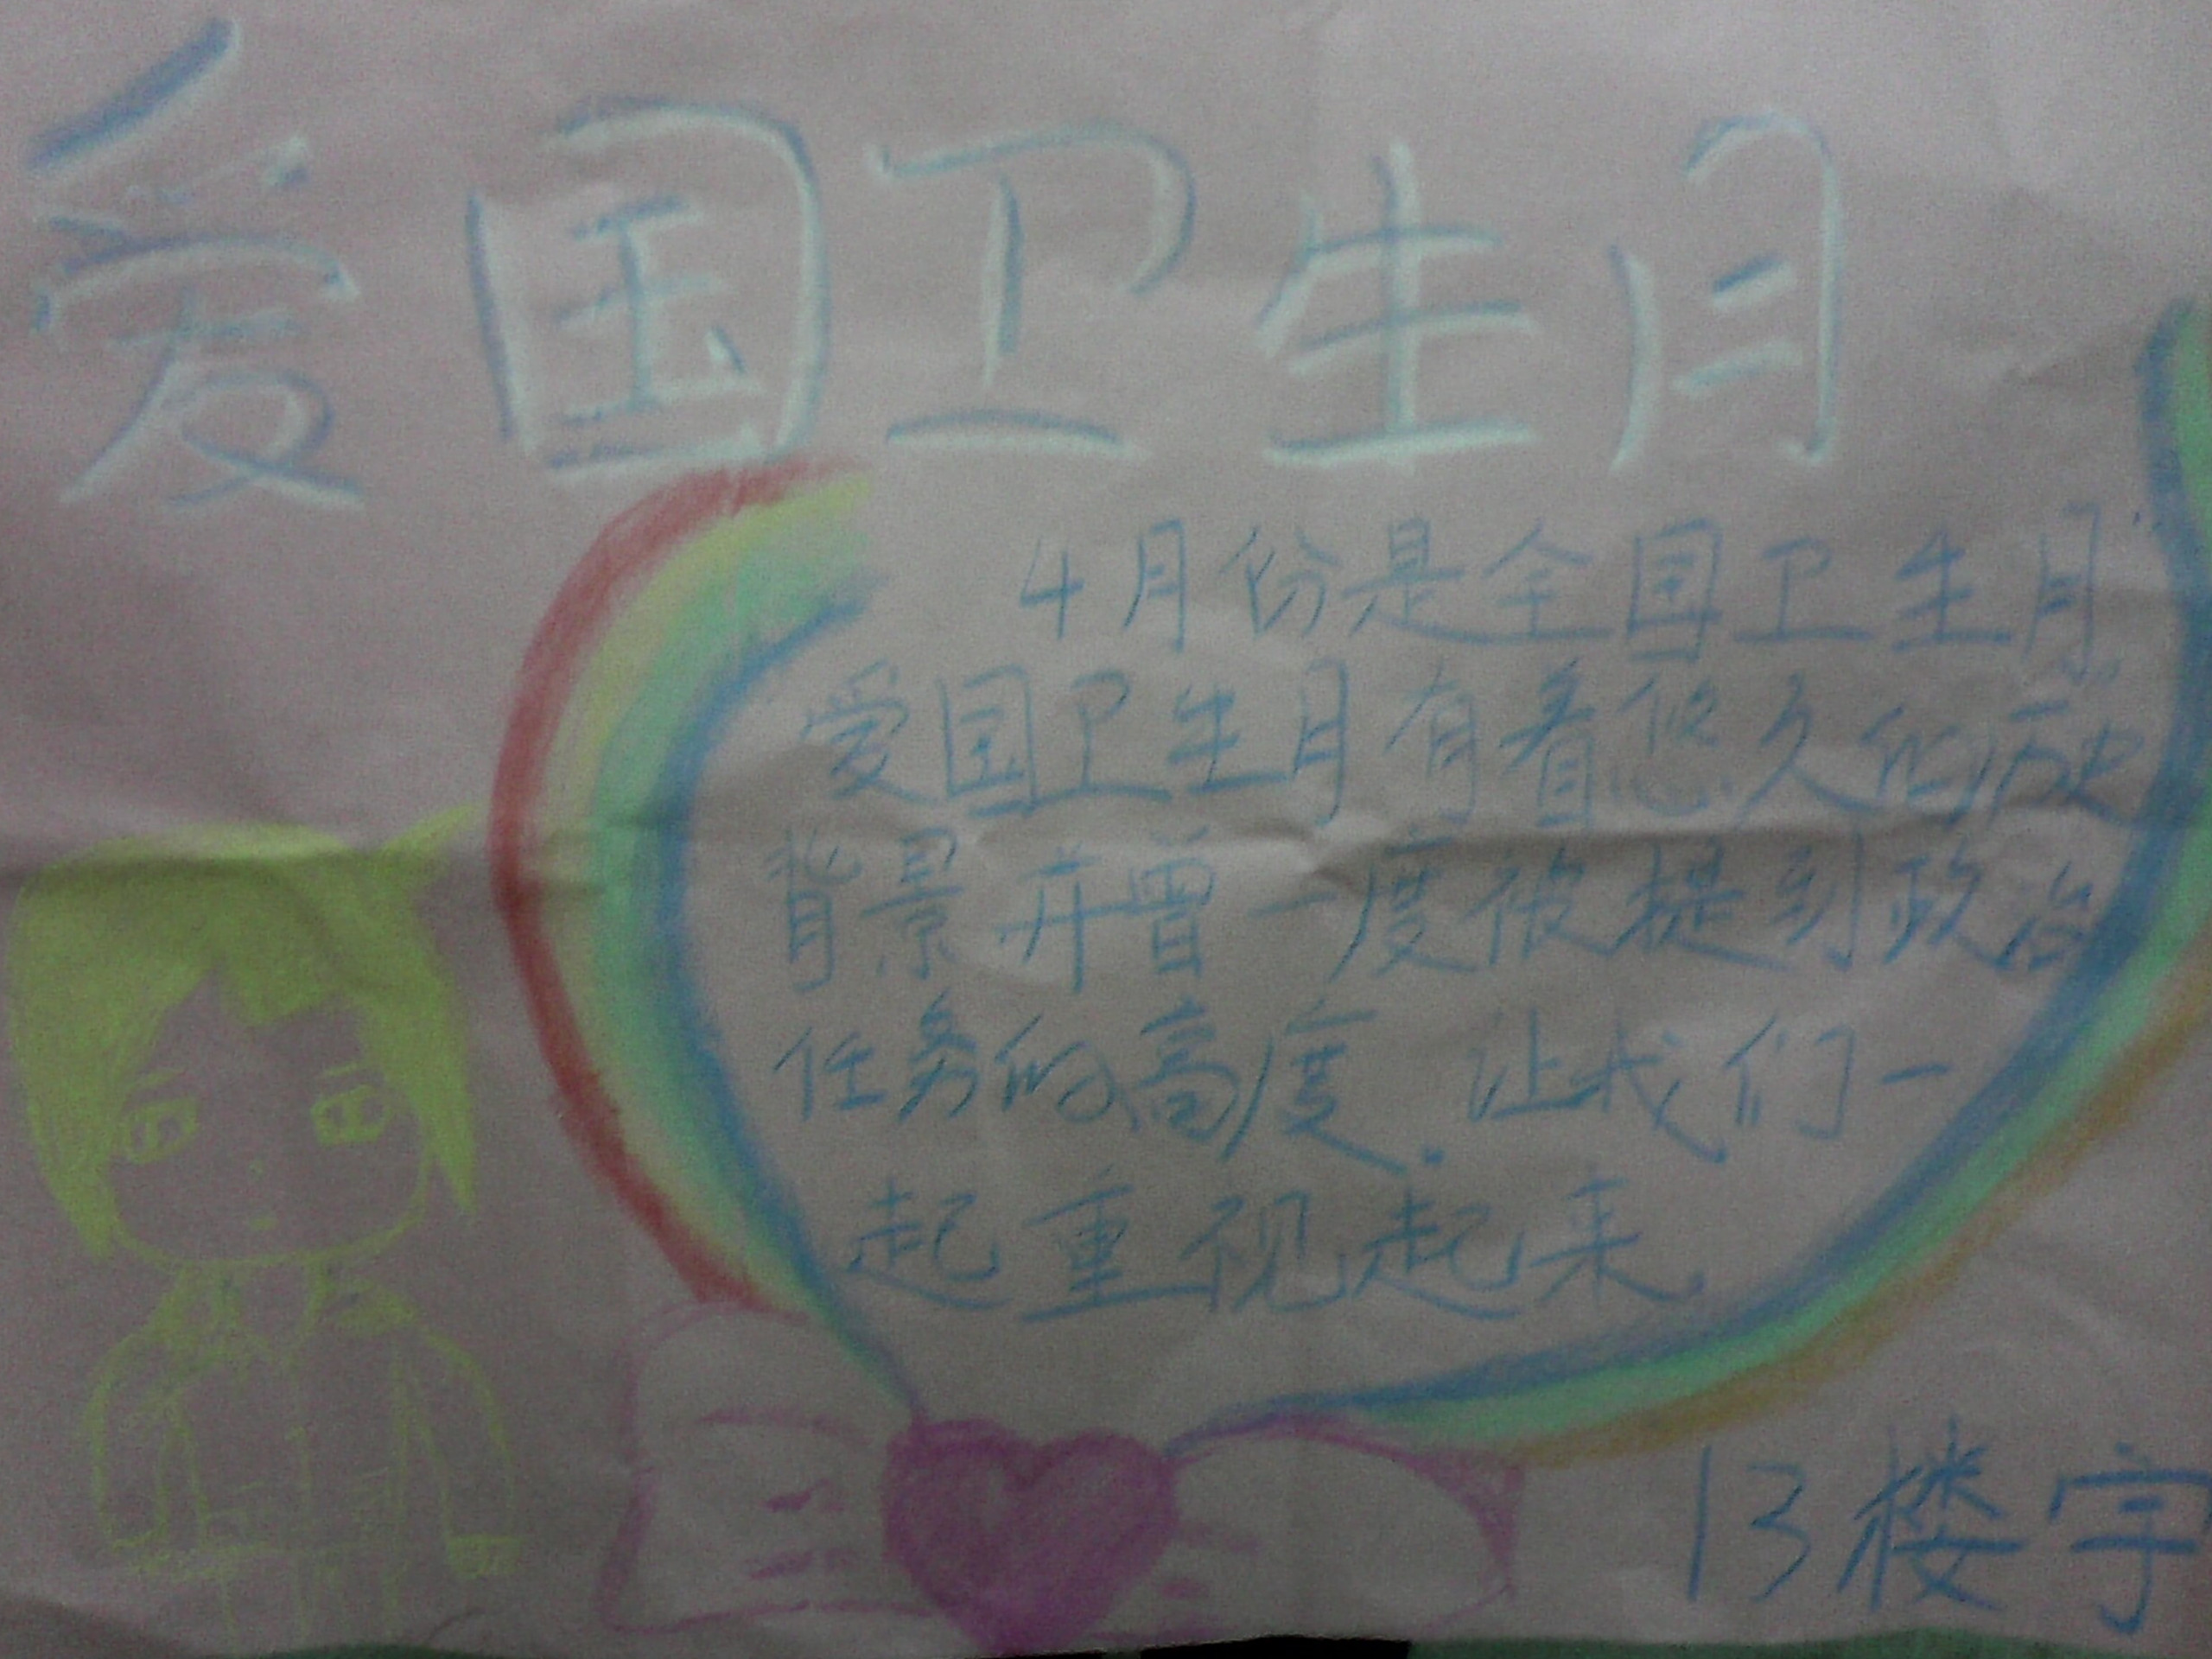 爱国卫生月
4月份是全国卫生月.
爱国卫生月有着悠久的历史
背景并曾一度被提到政治
任务的高度.让我们一
起重视起来.
13楼宇